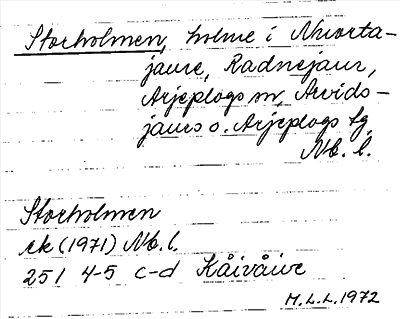 Storholmen, holme i Nuorta-
jaure, Radnejaur,
Arjeplogs sn, Arvids-
jaurs o. Arjeplogs tg,
Nb. l.
Storholmen
ek (1971) Nb. l.
25 I 4-5 c-d Kåivåive
M.L.L. 1972